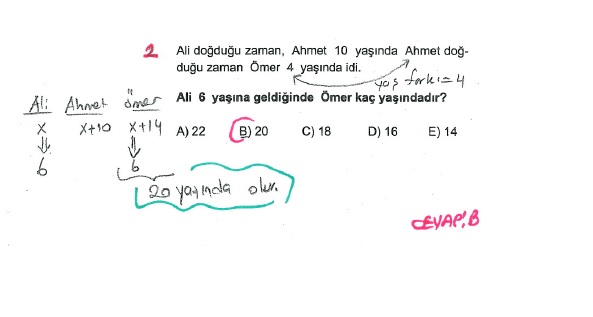 2 Ali doğduğu zaman, Ahmet 10 yaşında Ahmet doğ-
duğu zaman Ömer 4 yaşında idi.
yaş farkı=4
Ali 6 yaşına geldiğinde Ömer kaç yaşındadır?
A) 22 B) 20 C) 18 D) 16 E) 14
Ali Ahmet Ömer
x x+10 x+14
6 6
20 yaşında olur.
CEVAP, B